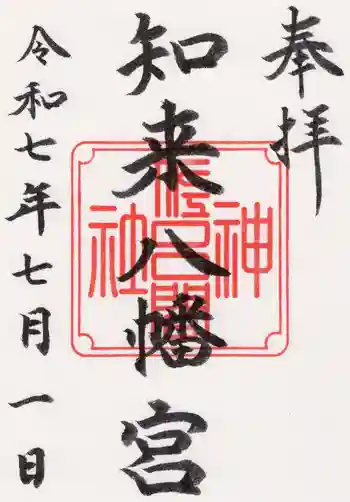 奉拝
知来八幡宮
令和七年七月一日
神社